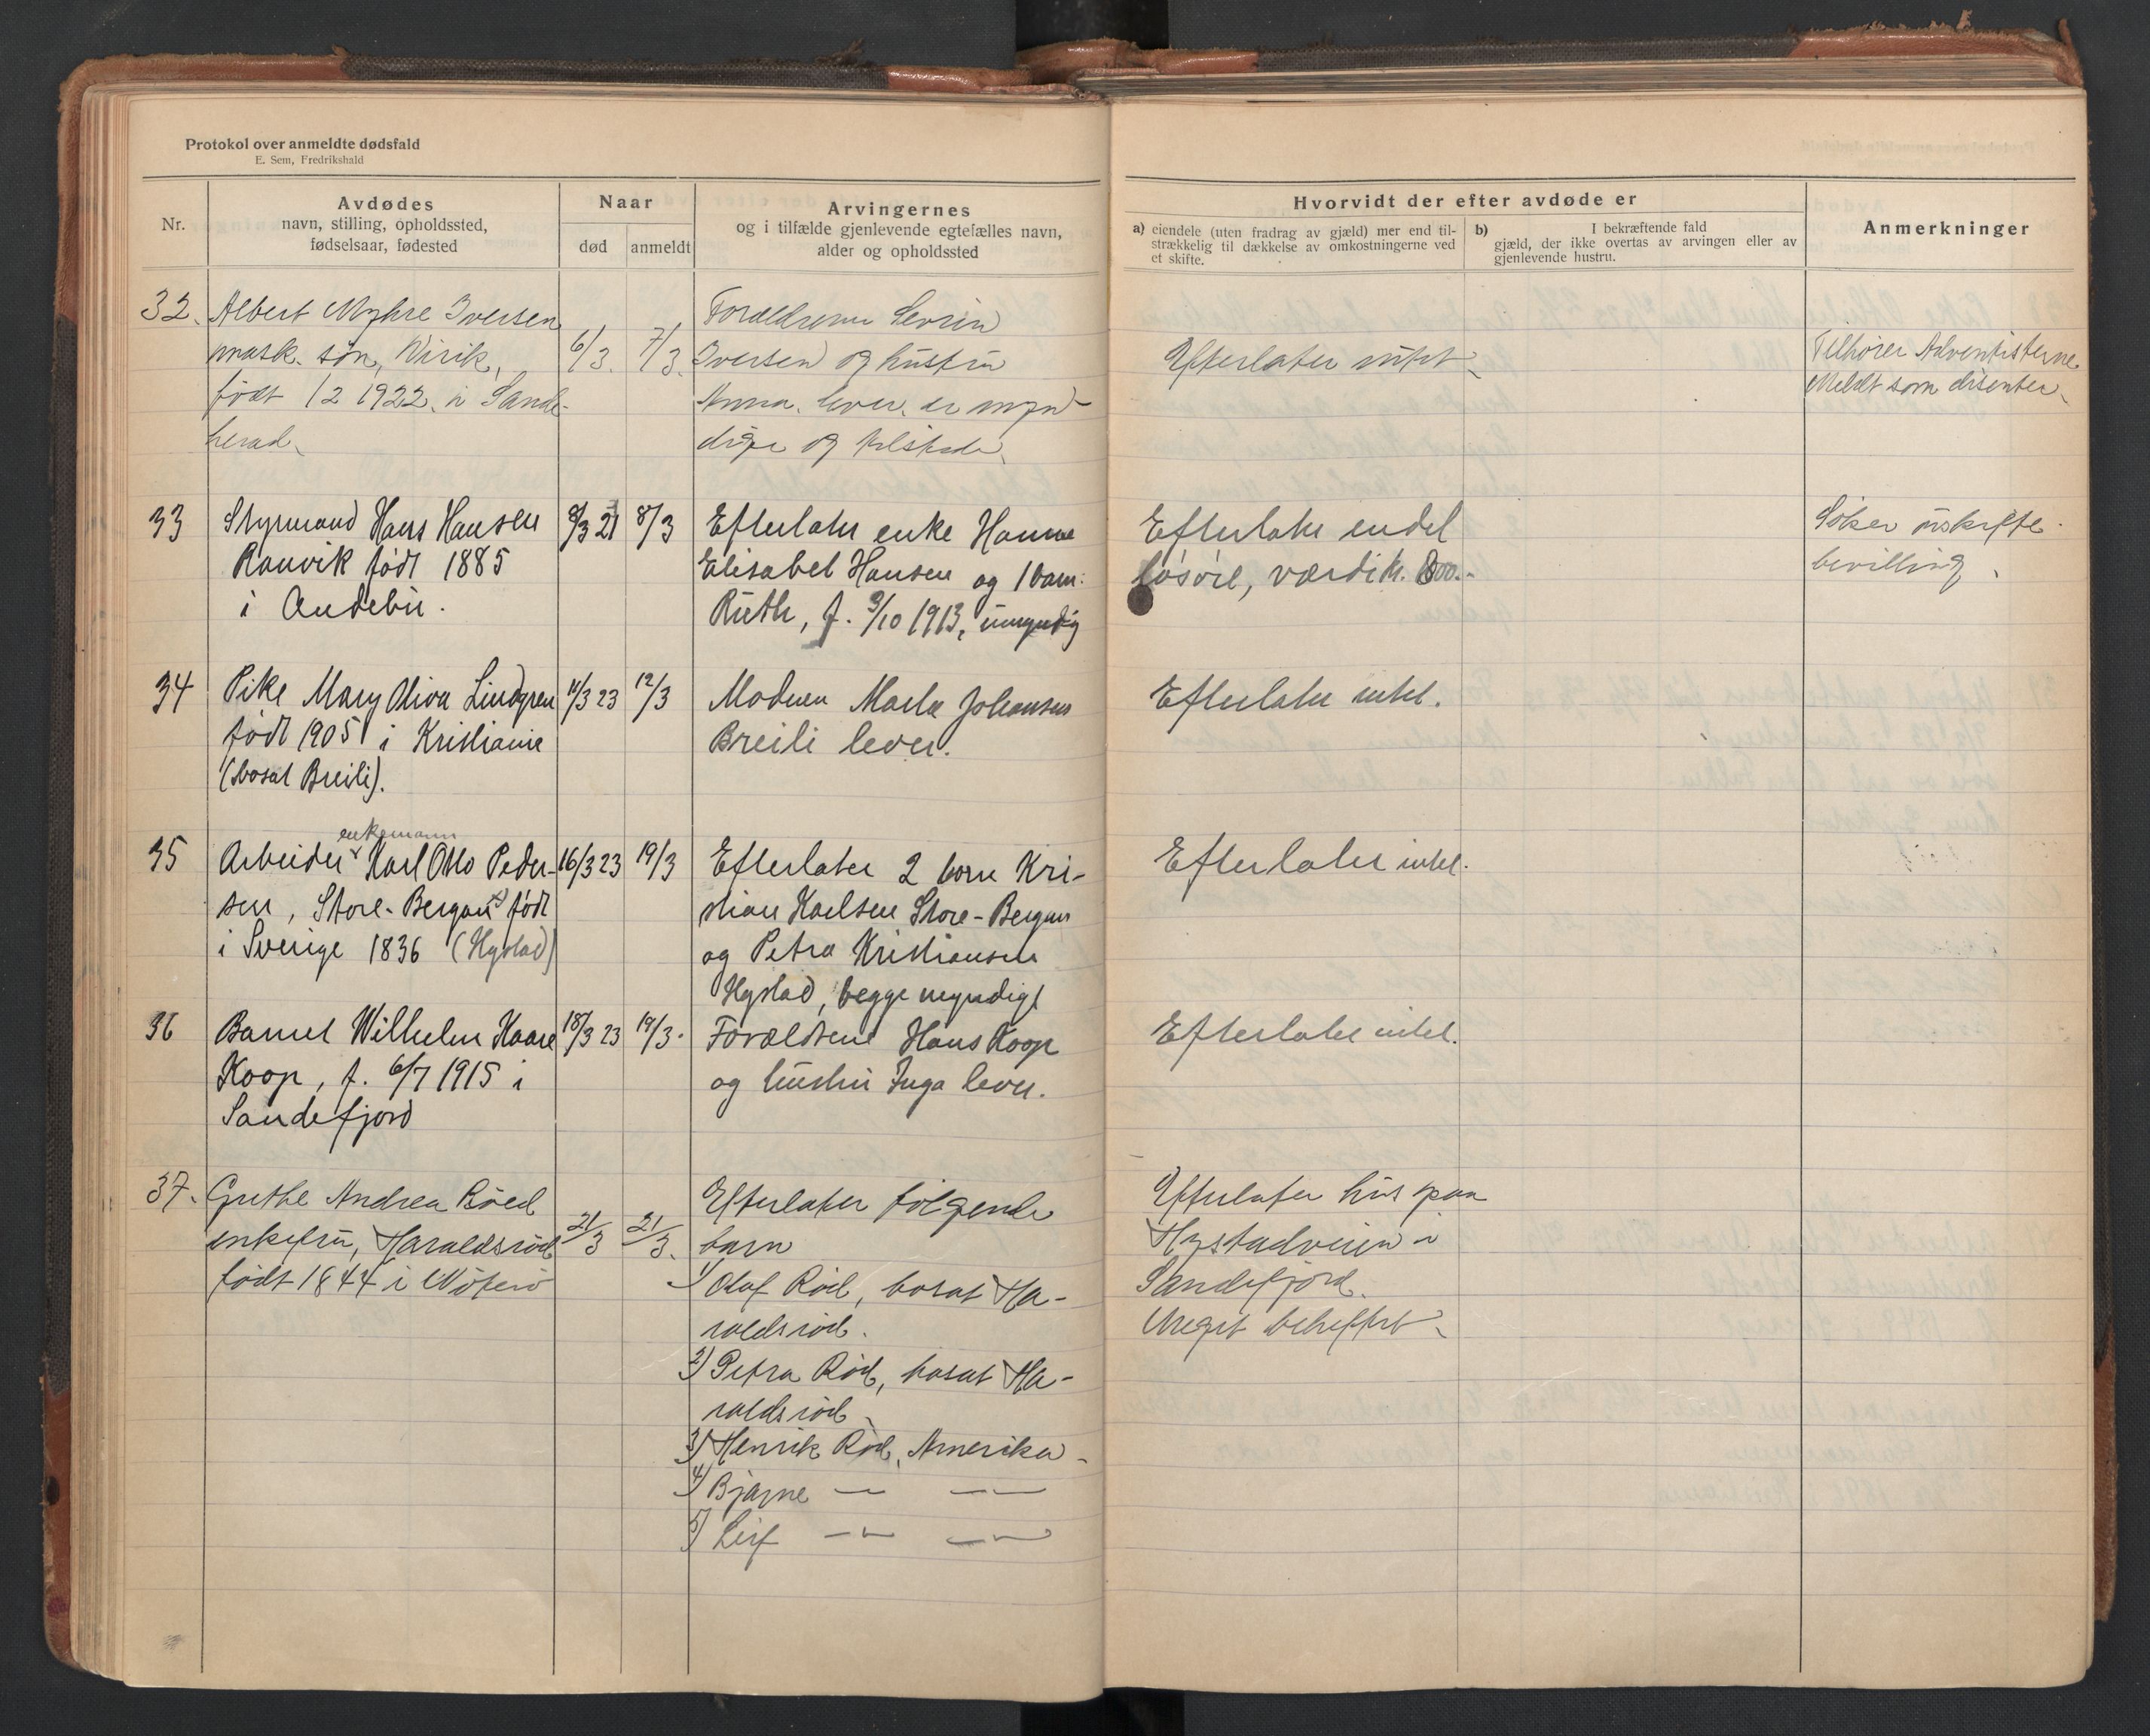 Protokol over anmeldte dødsfald
E. Sem, Fredrikshald
Nr.
Avdødes
navn, stilling, opholdssted,
fødselsaar, fødested
Naar
død
anmeldt
Arvingernes
og i tilfælde gjenlevende egtefælles navn,
alder og opholdssted
Hvorvidt der efter avdøde er
a) eiendele (uten fradrag av gjæld) mer end til-
strækkelig til dækkelse av omkostningerne ved
et skifte.
b) I bekræftende fald
gjæld, der ikke overtas av arvingen eller av
gjenlevende hustru.
Anmerkninger
32. Albert Myhre Iversen
mask. søn, Virik,
født 1/2 1922 i Sande-
herad.
6/3. 7/3.
Forældrene Sevrin
Iversen og hustru
Anna. lever. er myn-
dige og tilstede.
Efterlater intet.
Tilhører Adventisterne
Meldt som disenter.
33 Styrmand Hans Hansen
Ranvik født 1885
i Andebu.
8/3 21 8/3
Efterlater enke Hanna
Elisabet Hansen og 1 barn:
Ruth, f. 9/10 1913, umyndig
Efterlater endel
løsøre, værdi k. 800.-
Søker uskifte
bevilling.
34 Pike Mary Oliva Lindgren
født 1905 i Kristiania
(bosat Breili).
11/3 23 12/3
Moderen Marta Johansen
Breili lever.
Efterlater intet.
35 Arbeider enkemann Karl Otto Peder-
sen, Store-Bergan født
i Sverige 1836 (Hystad)
16/3 23 19/3
Efterlater 2 barn Kri-
stian Karlsen Store-Bergan
og Petra Kristiansen
Hystad, begge myndige
Efterlater intet.
36 Barnet Wilhelm Kaare
Koop, f. 6/7 1915 i
Sandefjord
18/3 23 19/3.
Forældrene Hans Koop
og hustru Inga lever.
Efterlater intet.
37. Grethe Andrea Röed
enkefru, Haraldsrød
født 1844 i Nøterø
21/3 21/3.
Efterlater følgende
barn
1) Olaf Rød, bosat Ha-
raldsrød.
2) Petra Rød, bosat Ha-
raldsrød.
3) Henrik Rød, Amerika -
4) Bjarne — —
5) Leif — —
Efterlater hus paa
Hystadveien i
Sandefjord.
Meget beheftet.